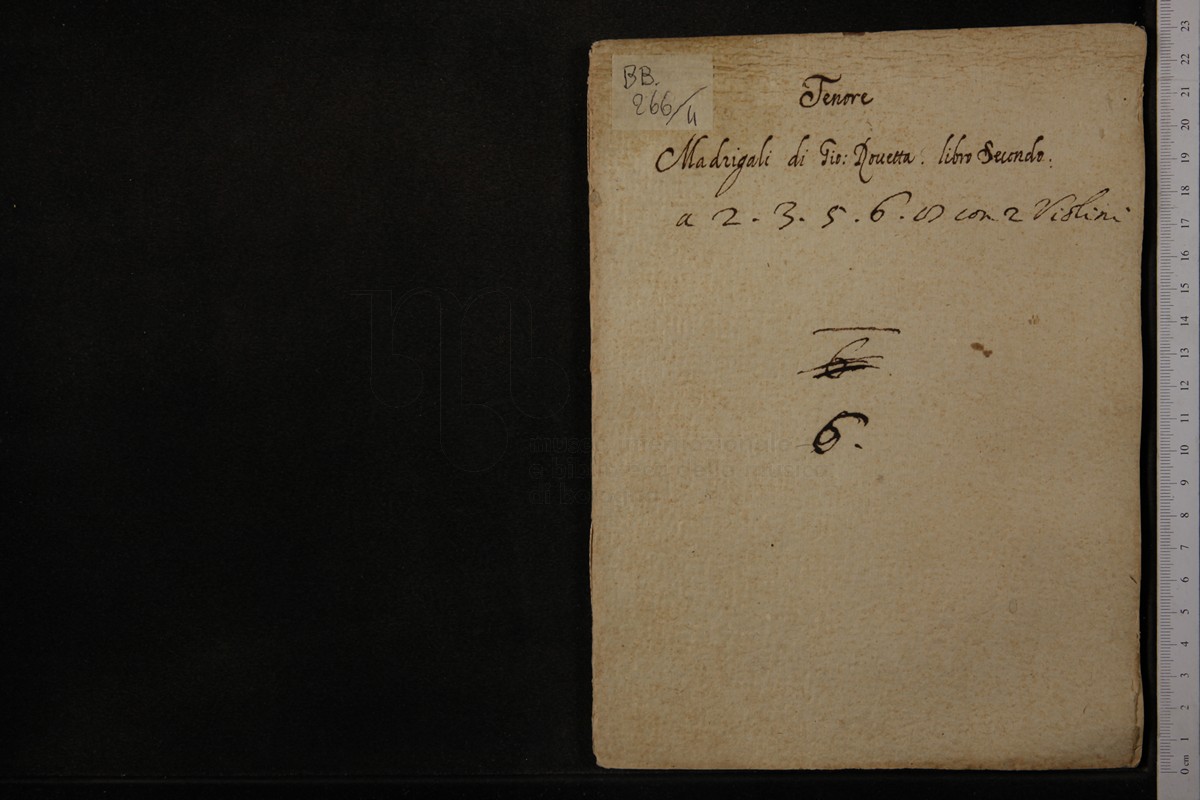 BB.
266/4
Tenore
Madrigali di Gio: Rouetta. libro Secondo.
a 2. 3. 5. 6. 8 con 2 Violini
6
6.
museo internazionale
e biblioteca della musica
di bologna
23
22
21
20
19
18
17
16
15
14
13
12
11
10
9
8
7
6
5
4
3
2
1
0 cm